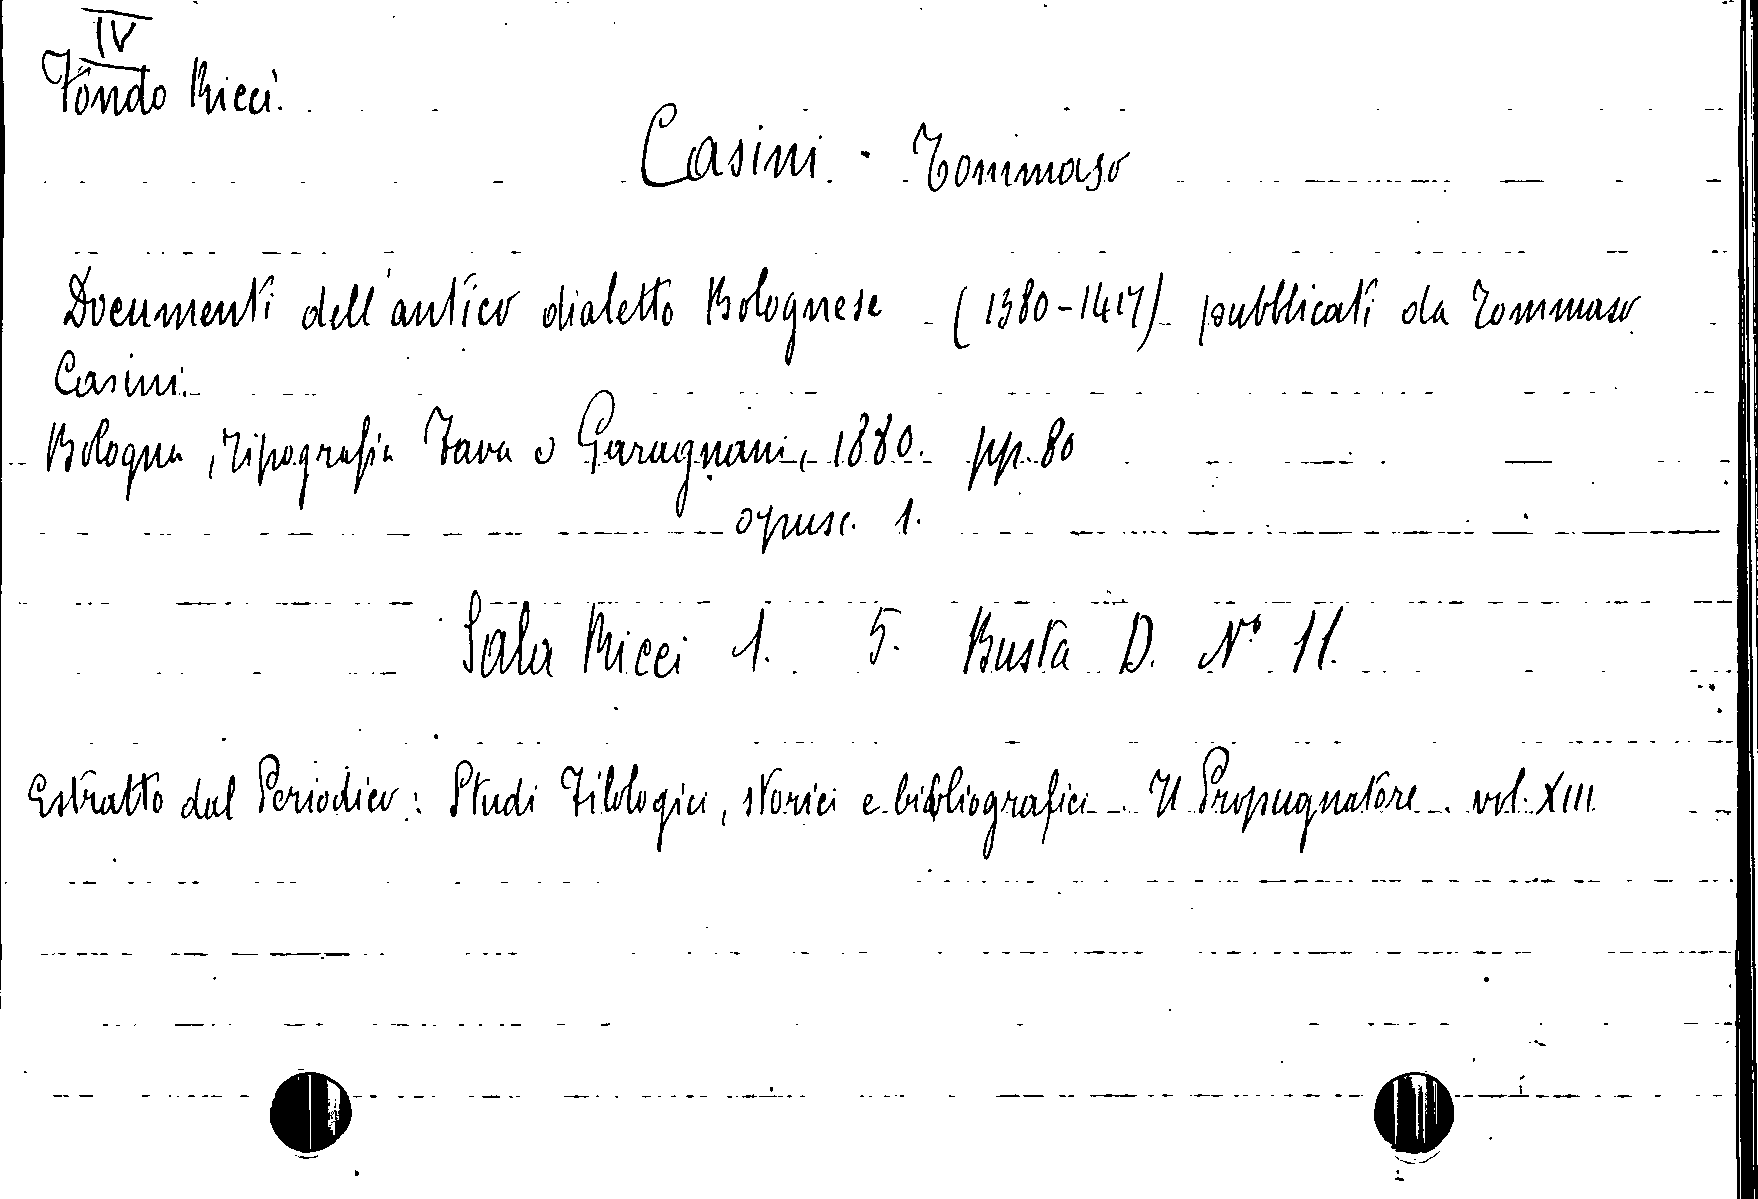 IV
Fondo Ricci.
Casini - Tommaso
Documenti dell'antico dialetto Bolognese (1380-1417) pubblicati da Tommaso
Casini.
Bologna, Tipografia Fava e Garagnani, 1880. pp. 80
opusc. 1.
Sala Ricci 1. 5. Busta D. N° 11.
Estratto dal Periodico: Studi Filologici, storici e bibliografici. Il Propugnatore. vol. XIII